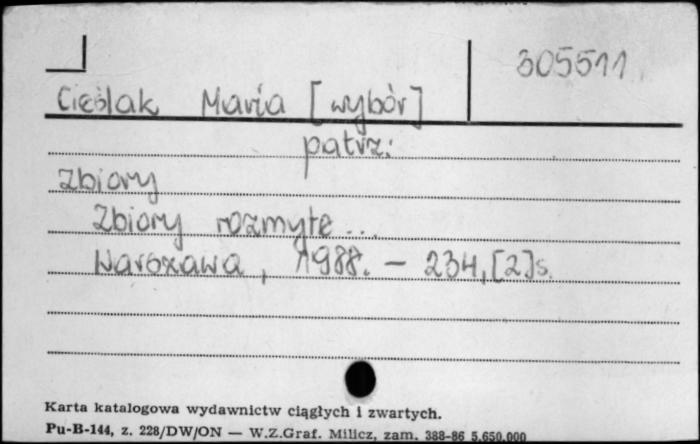 305511
Cieślak Maria [wybór]
patrz:
Zbiory
Zbiory rozmyte...
Warszawa, 1988. – 234,[2]s.
Karta katalogowa wydawnictw ciągłych i zwartych.
Pu-B-144, z. 228/DW/ON — W.Z.Graf. Milicz, zam. 388-86 5.650.000